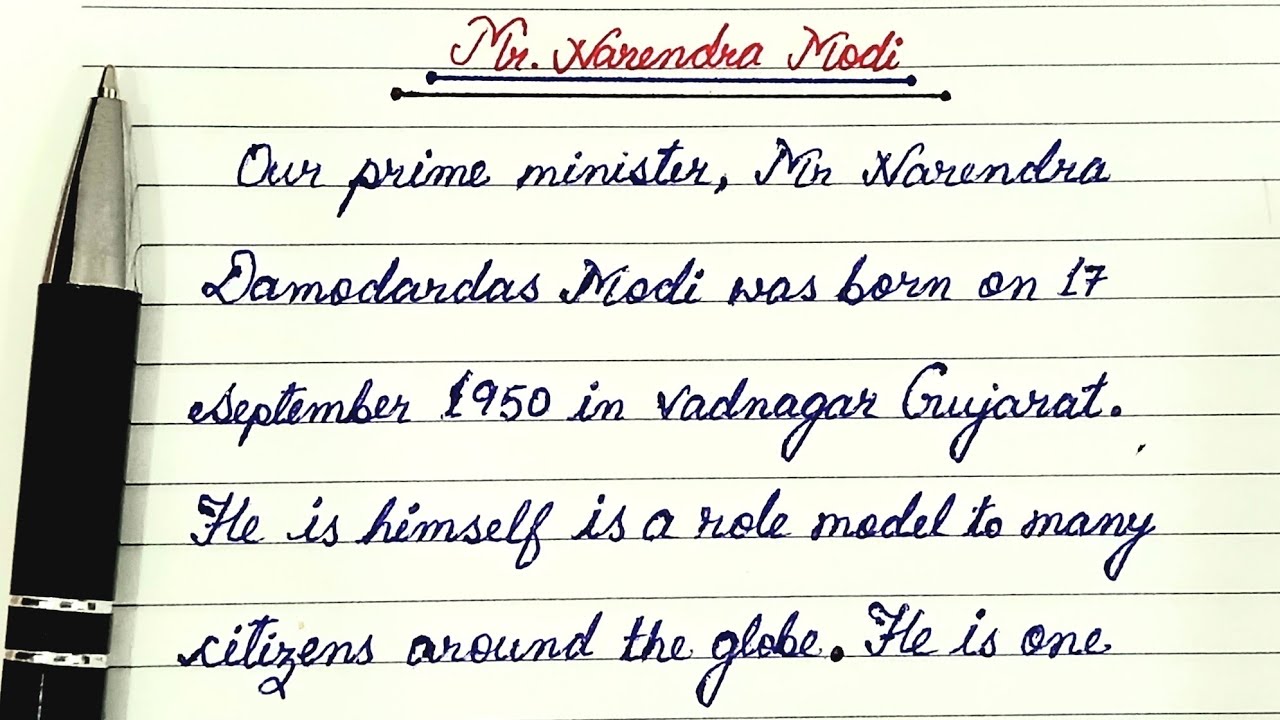 Mr. Narendra Modi
Our prime minister, Mr Narendra
Damodardas Modi was born on 17
september 1950 in vadnagar Gujarat.
He is himself is a role model to many
citizens around the globe. He is one